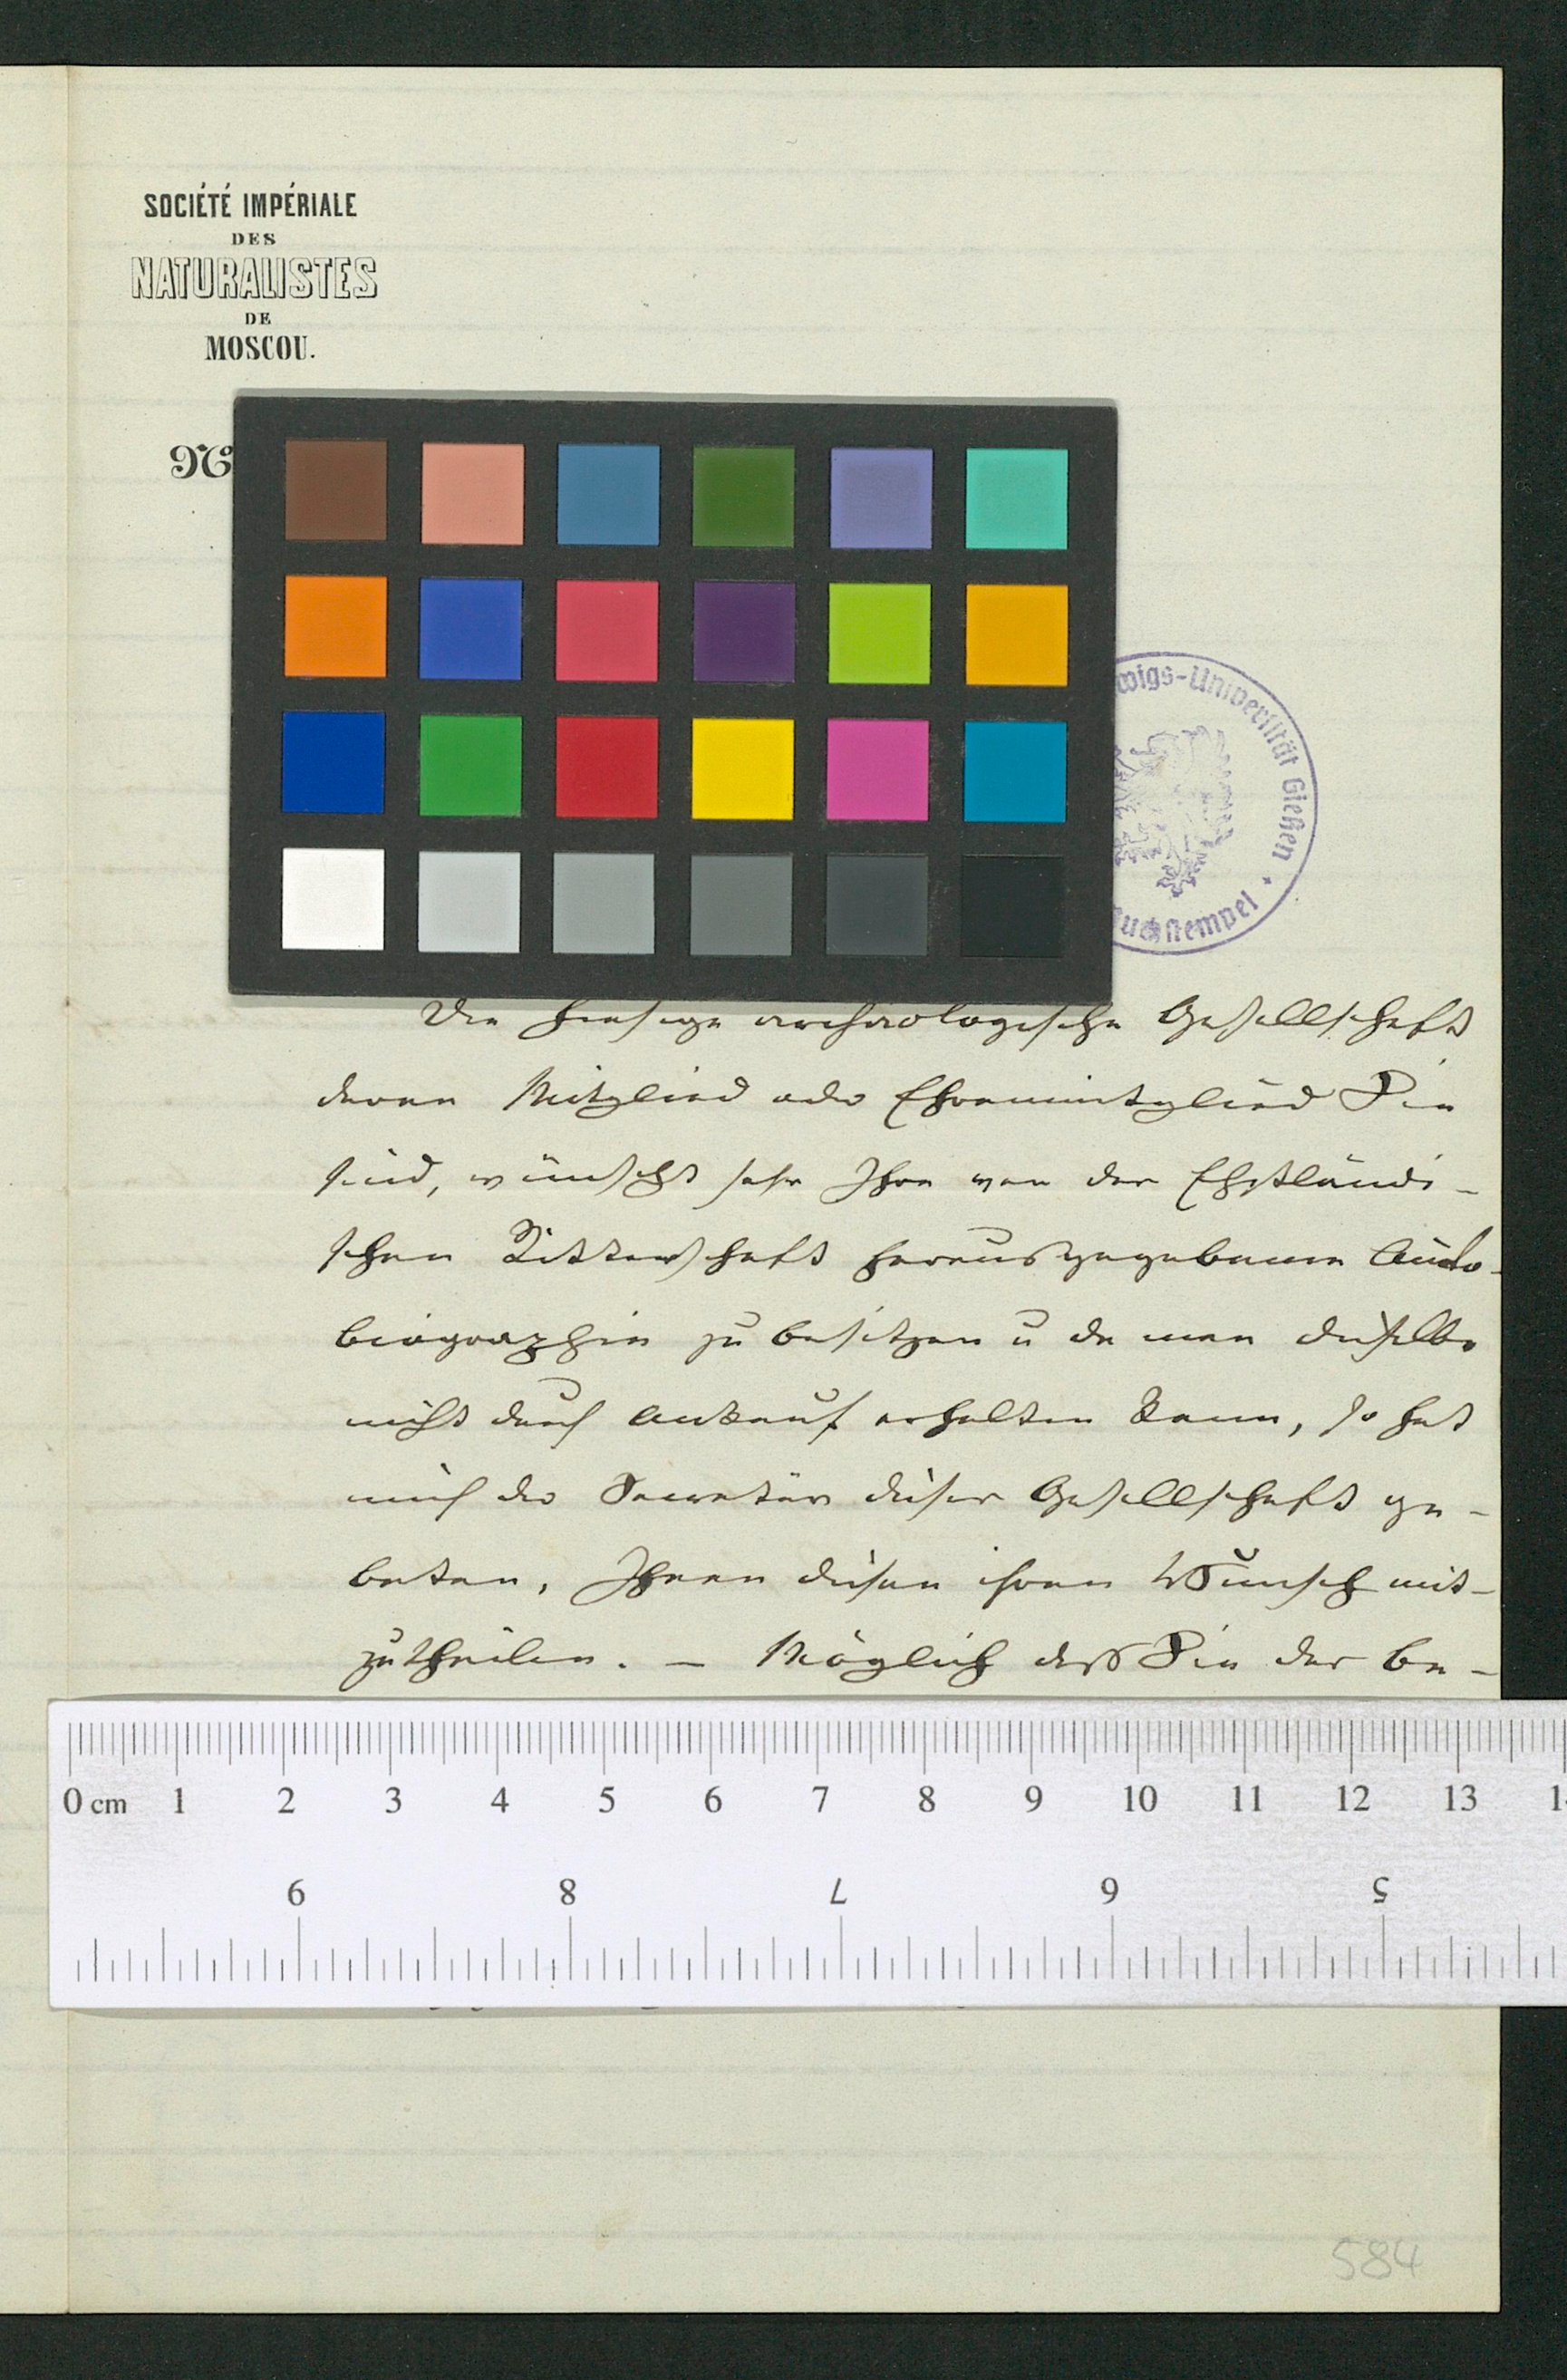 SOCIÉTÉ IMPÉRIALE
DES
NATURALISTES
DE
MOSCOU.
№
wigs-Universität Gießen
uchstempel
Die hiesige archäologische Gesellschaft
deren Mitglied oder Ehrenmitglied Sie
sind, wünscht sehr Ihre von der Ehstländi-
schen Ritterschaft herausgegebene Auto-
biographie zu besitzen u da man dieselbe
nicht durch Ankauf erhalten kann, so hat
mich der Secretär dieser Gesellschaft ge-
beten, Ihnen diesen ihren Wunsch mit-
zutheilen. — Möglich daß Sie der be-
0 cm 1 2 3 4 5 6 7 8 9 10 11 12 13 1
9 8 7 6 5
584